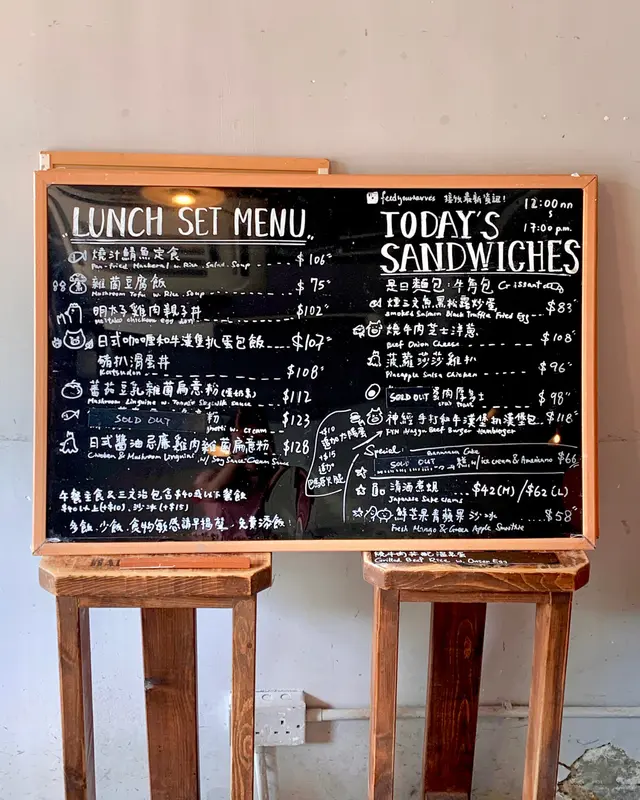 LUNCH SET MENU
燒汁鯖魚定食 $106
Pan-fried Mackerel w. Rice. Salad. Soup
雜菌豆腐飯 $75
Mushroom Tofu w. Rice. Soup
明太子雞肉親子丼 $102
mentaiko chicken egg don
日式咖喱和牛漢堡扒蛋包飯 $107
豬扒滑蛋丼 $108
Katsudon
蕃茄豆乳雜菌扁意粉 $112
Mushroom Linguine w. Tomato Soymilk Sauce
SOLD OUT 粉 $123
w. Cream
日式醬油忌廉雞肉雜菌扁意粉 $128
Chicken & Mushroom Linguini w/ Soy Sauce Cream Sauce
午製主食及三文治包含$40或以下製飲
$40以上(+$10), 沙冰(+$15)
多飯, 少飯, 食物敏感請早揚聲, 免費添飯!
feedyournerves 接收最新資訊!
12:00nn
17:00 p.m.
TODAY'S
SANDWICHES
是日麵包: 牛角包 Crissant
煙三文魚黑松露炒蛋 $83
smoked Salmon Black Truffle Fried Egg
燒牛肉芝士洋蔥 $108
Beef Onion Cheese
菠蘿莎莎雞扒 $96
Pineapple Salsa Chicken
SOLD OUT $98
神經手打和牛漢堡扒漢堡包 $118
FYN Wagyu Beef Burger Hamburger
+$10
追加太陽蛋
+$15
追加
巴馬火腿
Special:
SOLD OUT w/ ice cream & Americano $66
清酒煮蜆 $42(M) / $62(L)
Japanese Sake clams
鮮芒果青蘋果沙冰 $58
Fresh Mango & Green Apple Smoothie
燒牛肉丼配溫泉蛋
Grilled Beef Rice w. Onsen Egg